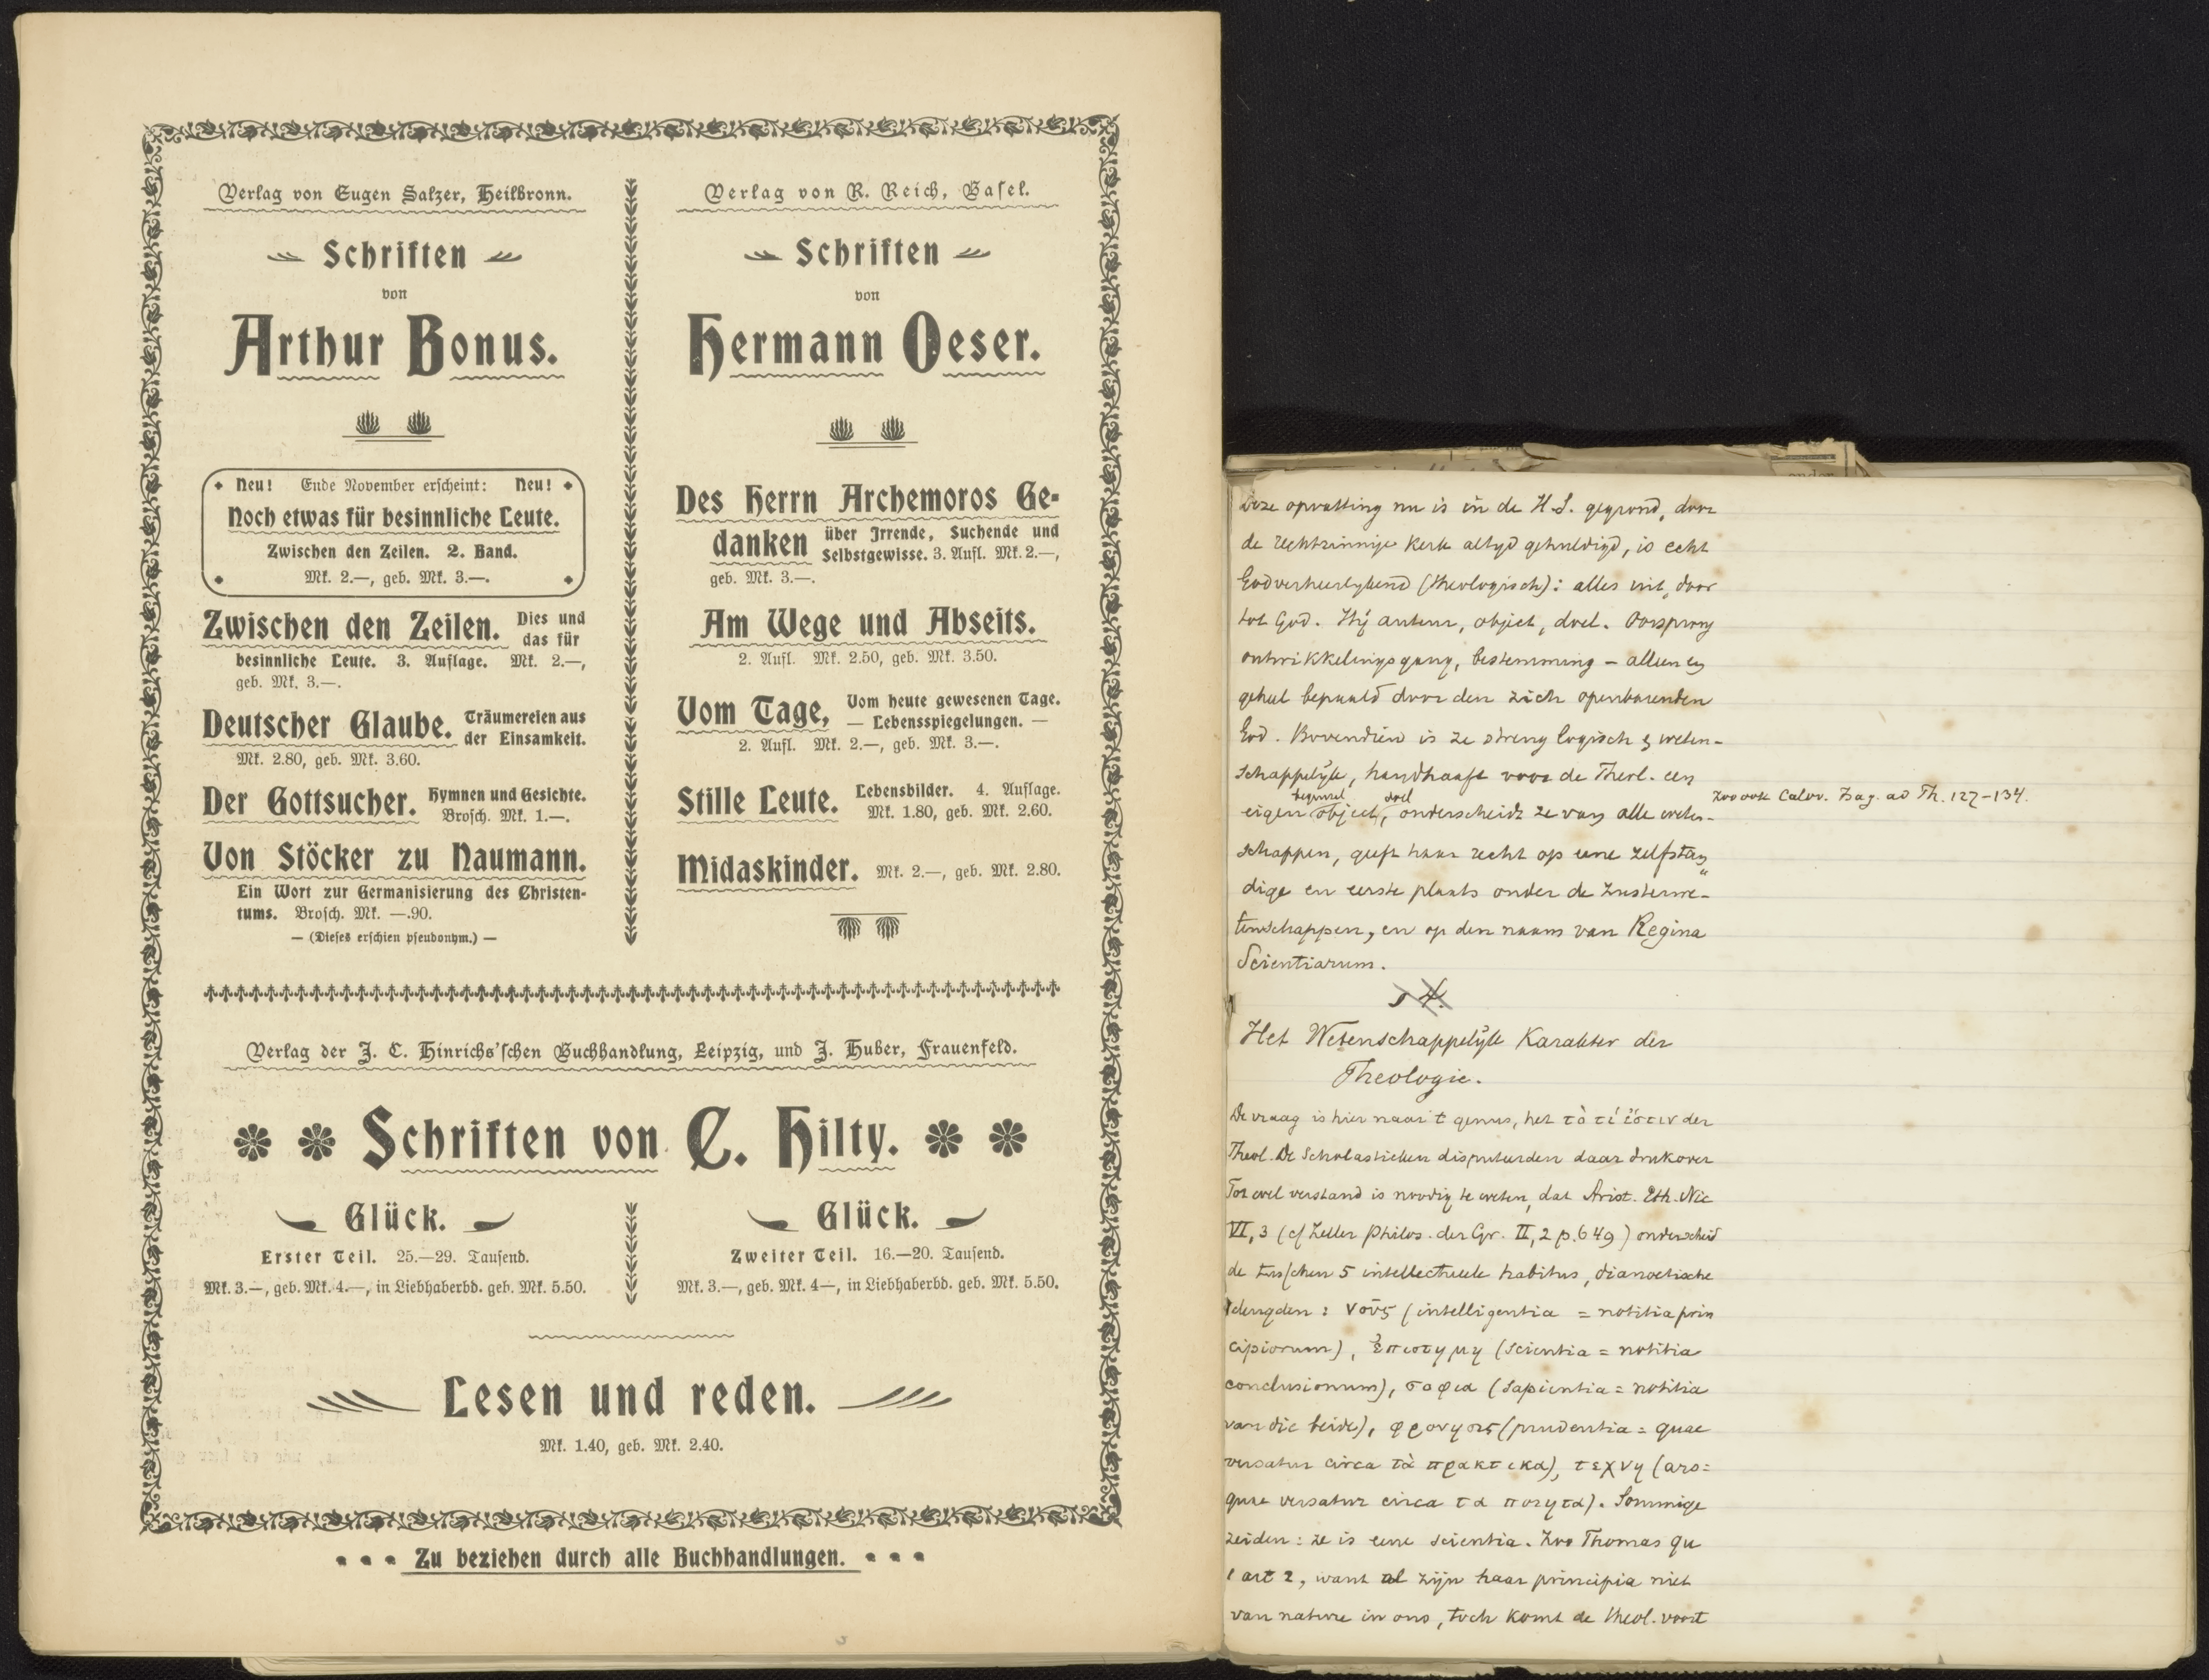 Verlag von Eugen Salzer, Heilbronn.
Schriften
von
Arthur Bonus.
Neu! Ende November erscheint: Neu!
Noch etwas für besinnliche Leute.
Zwischen den Zeilen. 2. Band.
Mk. 2.—, geb. Mk. 3.—.
Zwischen den Zeilen. Dies und
das für
besinnliche Leute. 3. Auflage. Mk. 2.—,
geb. Mk. 3.—.
Deutscher Glaube. Träumereien aus
der Einsamkeit.
Mk. 2.80, geb. Mk. 3.60.
Der Gottsucher. Hymnen und Gesichte.
Brosch. Mk. 1.—.
Von Stöcker zu Naumann.
Ein Wort zur Germanisierung des Christen-
tums. Brosch. Mk. —.90.
— (Dieses erschien pseudonym.) —
Verlag von R. Reich, Basel.
Schriften
von
Hermann Oeser.
Des Herrn Archemoros Ge-
danken über Irrende, Suchende und
Selbstgewisse. 3. Aufl. Mk. 2.—,
geb. Mk. 3.—.
Am Wege und Abseits.
2. Aufl. Mk. 2.50, geb. Mk. 3.50.
Vom Tage, Vom heute gewesenen Tage.
— Lebensspiegelungen. —
2. Aufl. Mk. 2.—, geb. Mk. 3.—.
Stille Leute. Lebensbilder. 4. Auflage.
Mk. 1.80, geb. Mk. 2.60.
Midaskinder. Mk. 2.—, geb. Mk. 2.80.
Verlag der J. C. Hinrichs'schen Buchhandlung, Leipzig, und J. Huber, Frauenfeld.
Schriften von C. Hilty.
Glück.
Erster Teil. 25.—29. Tausend.
Mk. 3.—, geb. Mk. 4.—, in Liebhaberbd. geb. Mk. 5.50.
Glück.
Zweiter Teil. 16.—20. Tausend.
Mk. 3.—, geb. Mk. 4—, in Liebhaberbd. geb. Mk. 5.50.
Lesen und reden.
Mk. 1.40, geb. Mk. 2.40.
Zu beziehen durch alle Buchhandlungen.
Deze opvatting nu is in de H.S. gegrond, door
de rechtzinnige Kerk altyd gehuldigd, is echt
Godverheerlykend (theologisch): alles uit, door
tot God. Hij auteur, object, doel. Oorsprong
ontwikkelingsgang, bestemming – alleen en
geheel bepaald door den zich openbarenden
God. Bovendien is ze streng logisch & weten-
schappelijk, handhaaft voor de Theol. een
beginsel doel
eigen object, onderscheidt ze van alle weten-
Zoo ook Calov. Isag. ad Th. 127–134.
schappen, geeft haar recht op eene zelfstan
dige en eerste plaats onder de zusterwe-
tenschappen, en op den naam van Regina
Scientiarum.
§ 4.
Het Wetenschappelijk Karakter der
Theologie.
De vraag is hier naar 't genus, het τὸ τί ἐστιν der
Theol. De Scholastieken disputeerden daar druk over
Tot wel verstand is noodig te weten, dat Arist. Eth. Nic
VI, 3 (cf Zeller Philos. der Gr. II, 2 p. 649) onderscheid
de tusschen 5 intellectueele habitus, dianoetische
deugden: νοῦς (intelligentia = notitia prin
cipiorum), ἐπιστημη (scientia = notitia
conclusionum), σοφια (sapientia = notitia
van die beide), φρονησις (prudentia = quae
versatur circa τὰ πρακτικα), τεχνη (ars =
quae versatur circa τα ποιητα). Sommige
zeiden: ze is eene scientia. Zoo Thomas qu
1 art 2, want al zijn haar principia niet
van nature in ons, toch komt de theol. voort